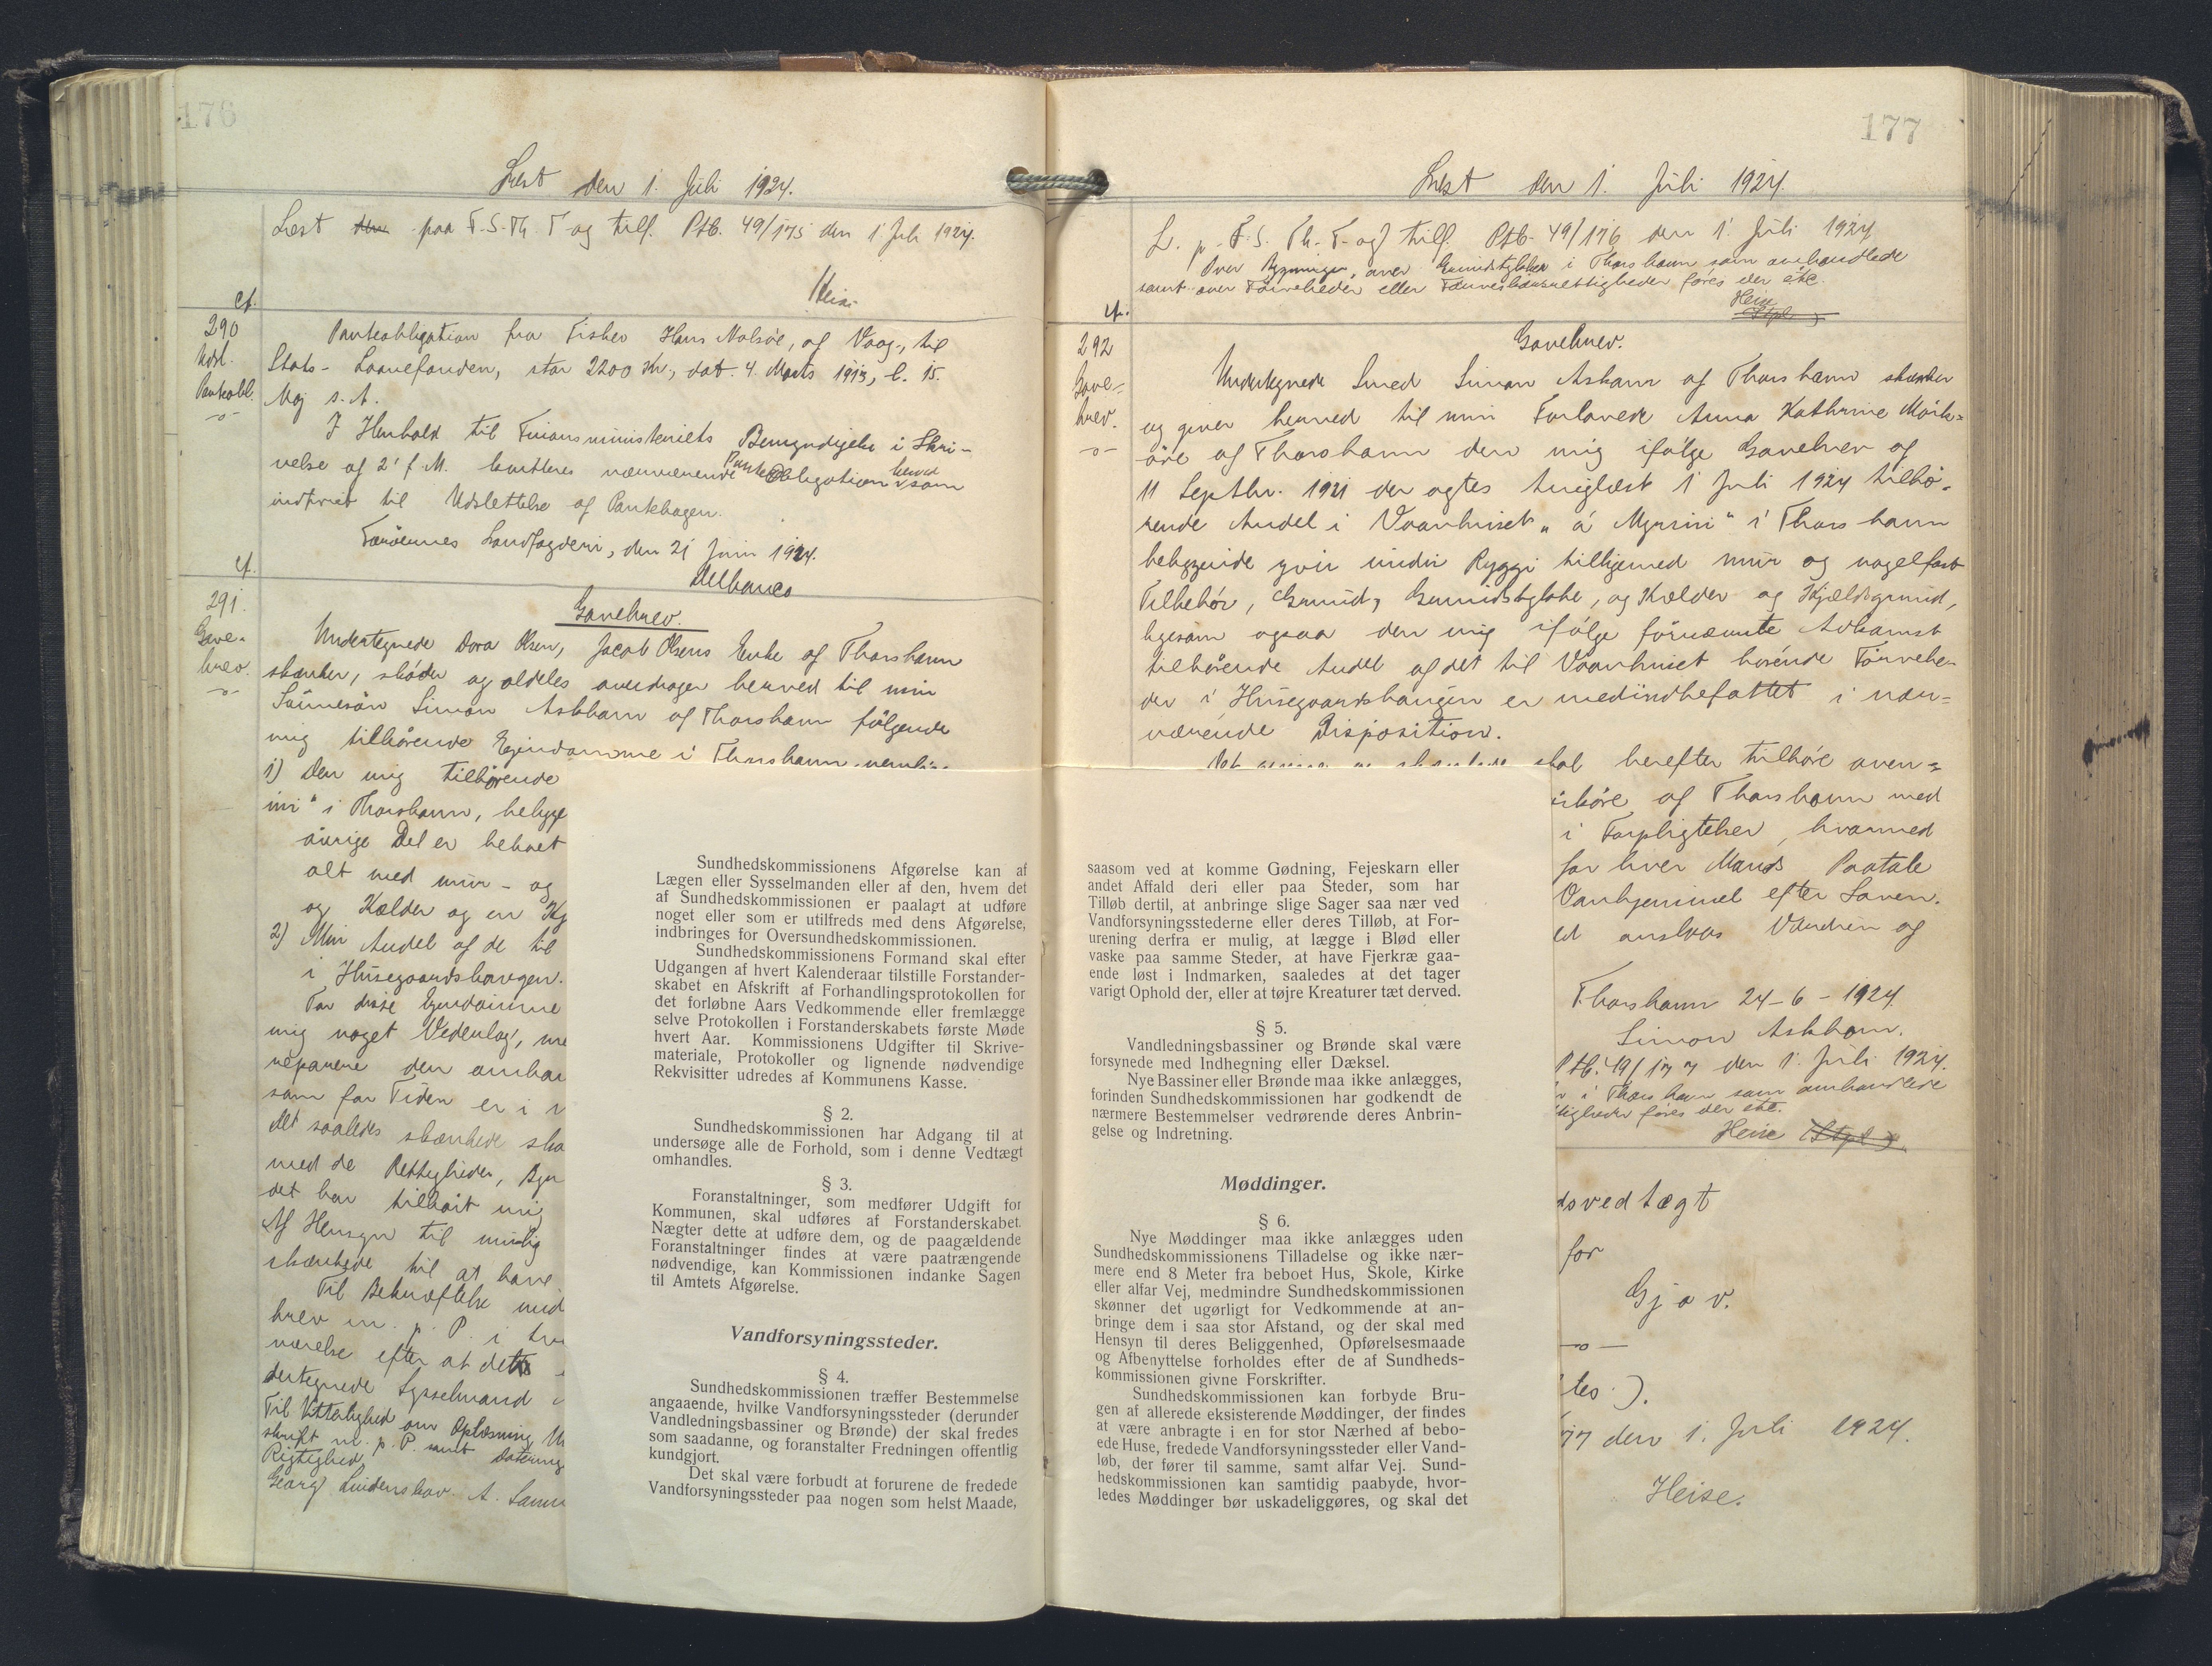 176
Læst den 1. Juli 1924.
Læst den paa T.S. Th. T og tilf. Ptb. 49/175 den 1 Juli 1924.
Heise
cf.
290
Udsl.
Panteobl.
Panteobligation fra Fisker Hans Nolsøe, af Vaag, til
Stats-Laanefonden, stor 2200 Kr., dat. 4. Marts 1913, l. 15.
Maj s. A.
I Henhold til Finansministeriets Bemyndigelse i Skri-
velse af 2' f. M. kvitteres nærværende Panteobligation herved som
indfriet til Udslettelse af Pantebogen.
Færøernes Landfogderi, den 21 Juni 1924.
cf.
291.
Gave-
brev.
Gavebrev.
Undertegnede Dora Olsen, Jacob Olsens Enke af Thorshavn
skænker, skøder og aldeles overdrager herved til min
Sønnesøn Simon Askham af Thorshavn følgende
mig tilhørende Ejendomme i Thorshavn, nemlig
1) Den mig tilhørende
ini" i Thorshavn, beligge
øvrige Del er beboet
alt med mur- og
og Kælder og en Kj
2) Min Andel af de til
i Húsegaardshaugen.
For disse Ejendomme
mig noget Vederlag, me
reparere den omhan
som for Tiden er i
det saaledes skænkede ska
med de Rettigheder, Byr
det har tilhørt mig
Af Hensyn til mulig
skænkede til at have
Til Bekræftelse med
brev m. p. P. i
nærelse efter at dette
dertegnede Sysselmand
Til Vitterlighed om Oplæsning, Un
skrift m. p. P. samt Datering
Rigtighed
Georg Lindenskov. A.
Sundhedskommissionens Afgørelse kan af
Lægen eller Sysselmanden eller af den, hvem det
af Sundhedskommissionen er paalagt at udføre
noget eller som er utilfreds med dens Afgørelse,
indbringes for Oversundhedskommissionen.
Sundhedskommissionens Formand skal efter
Udgangen af hvert Kalenderaar tilstille Forstander-
skabet en Afskrift af Forhandlingsprotokollen for
det forløbne Aars Vedkommende eller fremlægge
selve Protokollen i Forstanderskabets første Møde
hvert Aar. Kommissionens Udgifter til Skrive-
materiale, Protokoller og lignende nødvendige
Rekvisitter udredes af Kommunens Kasse.
§ 2.
Sundhedskommissionen har Adgang til at
undersøge alle de Forhold, som i denne Vedtægt
omhandles.
§ 3.
Foranstaltninger, som medfører Udgift for
Kommunen, skal udføres af Forstanderskabet.
Nægter dette at udføre dem, og de paagældende
Foranstaltninger findes at være paatrængende
nødvendige, kan Kommissionen indanke Sagen
til Amtets Afgørelse.
Vandforsyningssteder.
§ 4.
Sundhedskommissionen træffer Bestemmelse
angaaende, hvilke Vandforsyningssteder (derunder
Vandledningsbassiner og Brønde) der skal fredes
som saadanne, og foranstalter Fredningen offentlig
kundgjort.
Det skal være forbudt at forurene de fredede
Vandforsyningssteder paa nogen som helst Maade,
177
Læst den 1. Juli 1924.
L. p. T.S. Th. T. og tilf. Ptb. 49/176 den 1. Juli 1924
Over Bygninger, over Grundstykker i Thorshavn som omhandlede
samt over Tørveheder eller Tørveskærsrettigheder føres der etc.
Heise
cf.
292
Gave-
brev.
Gavebrev.
Undertegnede Smed Simon Askham af Thorshavn skænker
og giver herved til min Forlovede Anna Kathrine Mørk-
øre af Thorshavn den mig ifølge Gavebrev af
11 Septbr. 1921 der agtes tinglæst 1 Juli 1924 tilhø-
rende Andel i Vaanhuset "á Mýrini" i Thorshavn
beliggende yvir undir Ryggi tilligemed mur og nagelfast
Tilbehör, Grund, Grundstykke, og Kælder og Kjældsgrund,
ligesom ogsaa den mig ifølge fornævnte Adkomst
tilhørende Andel af det til Vaanhuset hørende Tørvehe-
der i Húsegaardshaugen er medindbefattet i nær-
værende Disposition.
skal herefter tilhøre oven-
irkøre af Thorshavn med
i Forpligtelser, hvormed
for hver Mands Paatale
Vanhjemmel efter Loven.
et anslaas Værdien og
Thorshavn 24-6-1924.
Simon Askham.
Ptb. 49/177 den 1. Juli 1924.
r i Thorshavn som omhandlede
tigheder føres der etc.
Heise (Stpl)
dsvedtægt
for
Gjov.
—o—
tes.).
77 den 1. Juli 1924.
Heise.
saasom ved at komme Gødning, Fejeskarn eller
andet Affald deri eller paa Steder, som har
Tilløb dertil, at anbringe slige Sager saa nær ved
Vandforsyningsstederne eller deres Tilløb, at For-
urening derfra er mulig, at lægge i Blød eller
vaske paa samme Steder, at have Fjerkræ gaa-
ende løst i Indmarken, saaledes at det tager
varigt Ophold der, eller at tøjre Kreaturer tæt derved.
§ 5.
Vandledningsbassiner og Brønde skal være
forsynede med Indhegning eller Dæksel.
Nye Bassiner eller Brønde maa ikke anlægges,
forinden Sundhedskommissionen har godkendt de
nærmere Bestemmelser vedrørende deres Anbrin-
gelse og Indretning.
Møddinger.
§ 6.
Nye Møddinger maa ikke anlægges uden
Sundhedskommissionens Tilladelse og ikke nær-
mere end 8 Meter fra beboet Hus, Skole, Kirke
eller alfar Vej, medmindre Sundhedskommissionen
skønner det ugørligt for Vedkommende at an-
bringe dem i saa stor Afstand, og der skal med
Hensyn til deres Beliggenhed, Opførelsesmaade
og Afbenyttelse forholdes efter de af Sundheds-
kommissionen givne Forskrifter.
Sundhedskommissionen kan forbyde Bru-
gen af allerede eksisterende Møddinger, der findes
at være anbragte i en for stor Nærhed af bebo-
ede Huse, fredede Vandforsyningssteder eller Vand-
løb, der fører til samme, samt alfar Vej. Sund-
hedskommissionen kan samtidig paabyde, hvor-
ledes Møddinger bør uskadeliggøres, og skal det